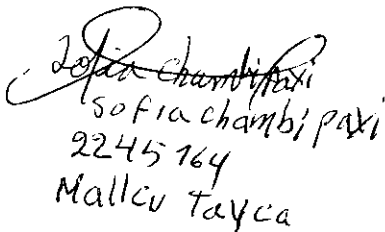 Sofia Chambi Paxi
Sofia chambi paxi
2245164
Mallcu Tayca